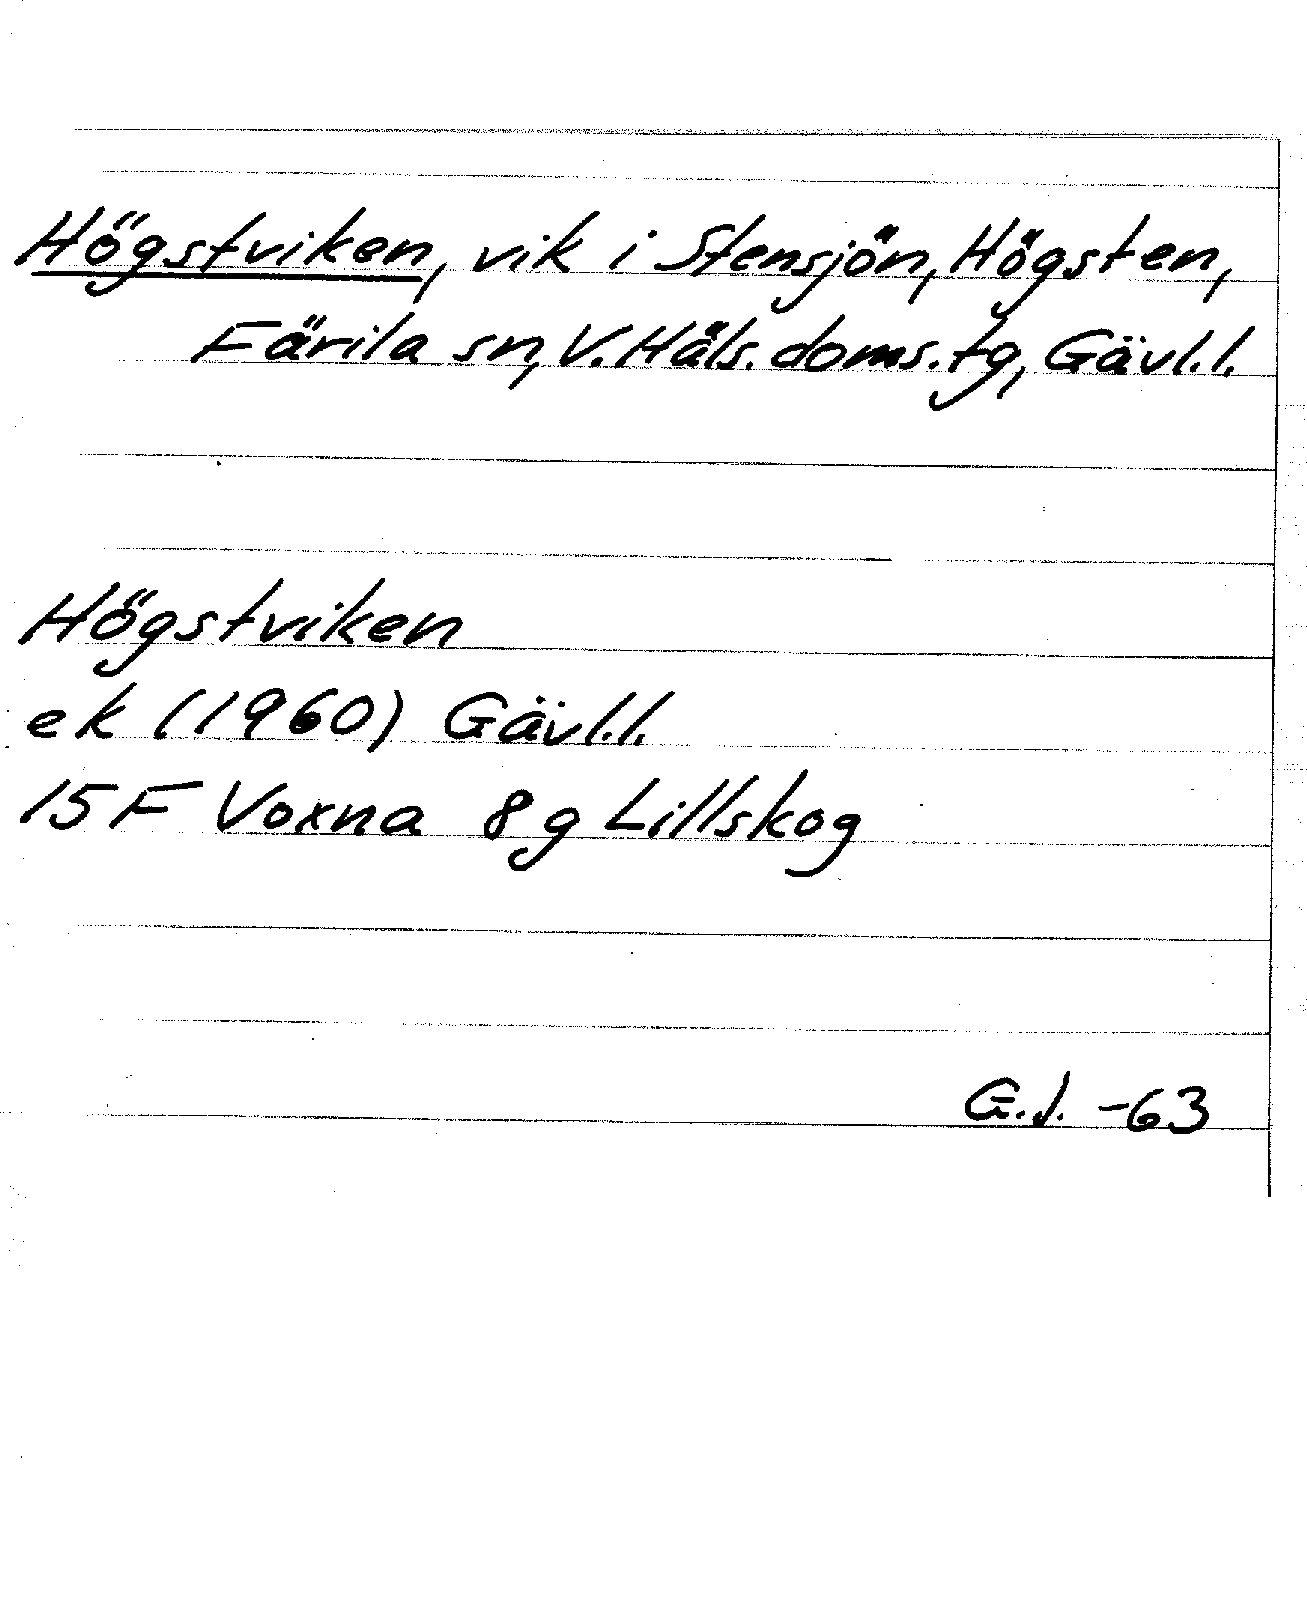 Högstviken, vik i Stensjön, Högsten,
Färila sn, V. Häls. doms. tg, Gävl.l.
Högstviken
ek (1960) Gävl.l.
15 F Voxna 8 g Lillskog
G.J. -63